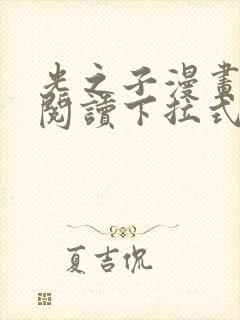 光之子漫畫
閱讀下拉式
夏吉侃